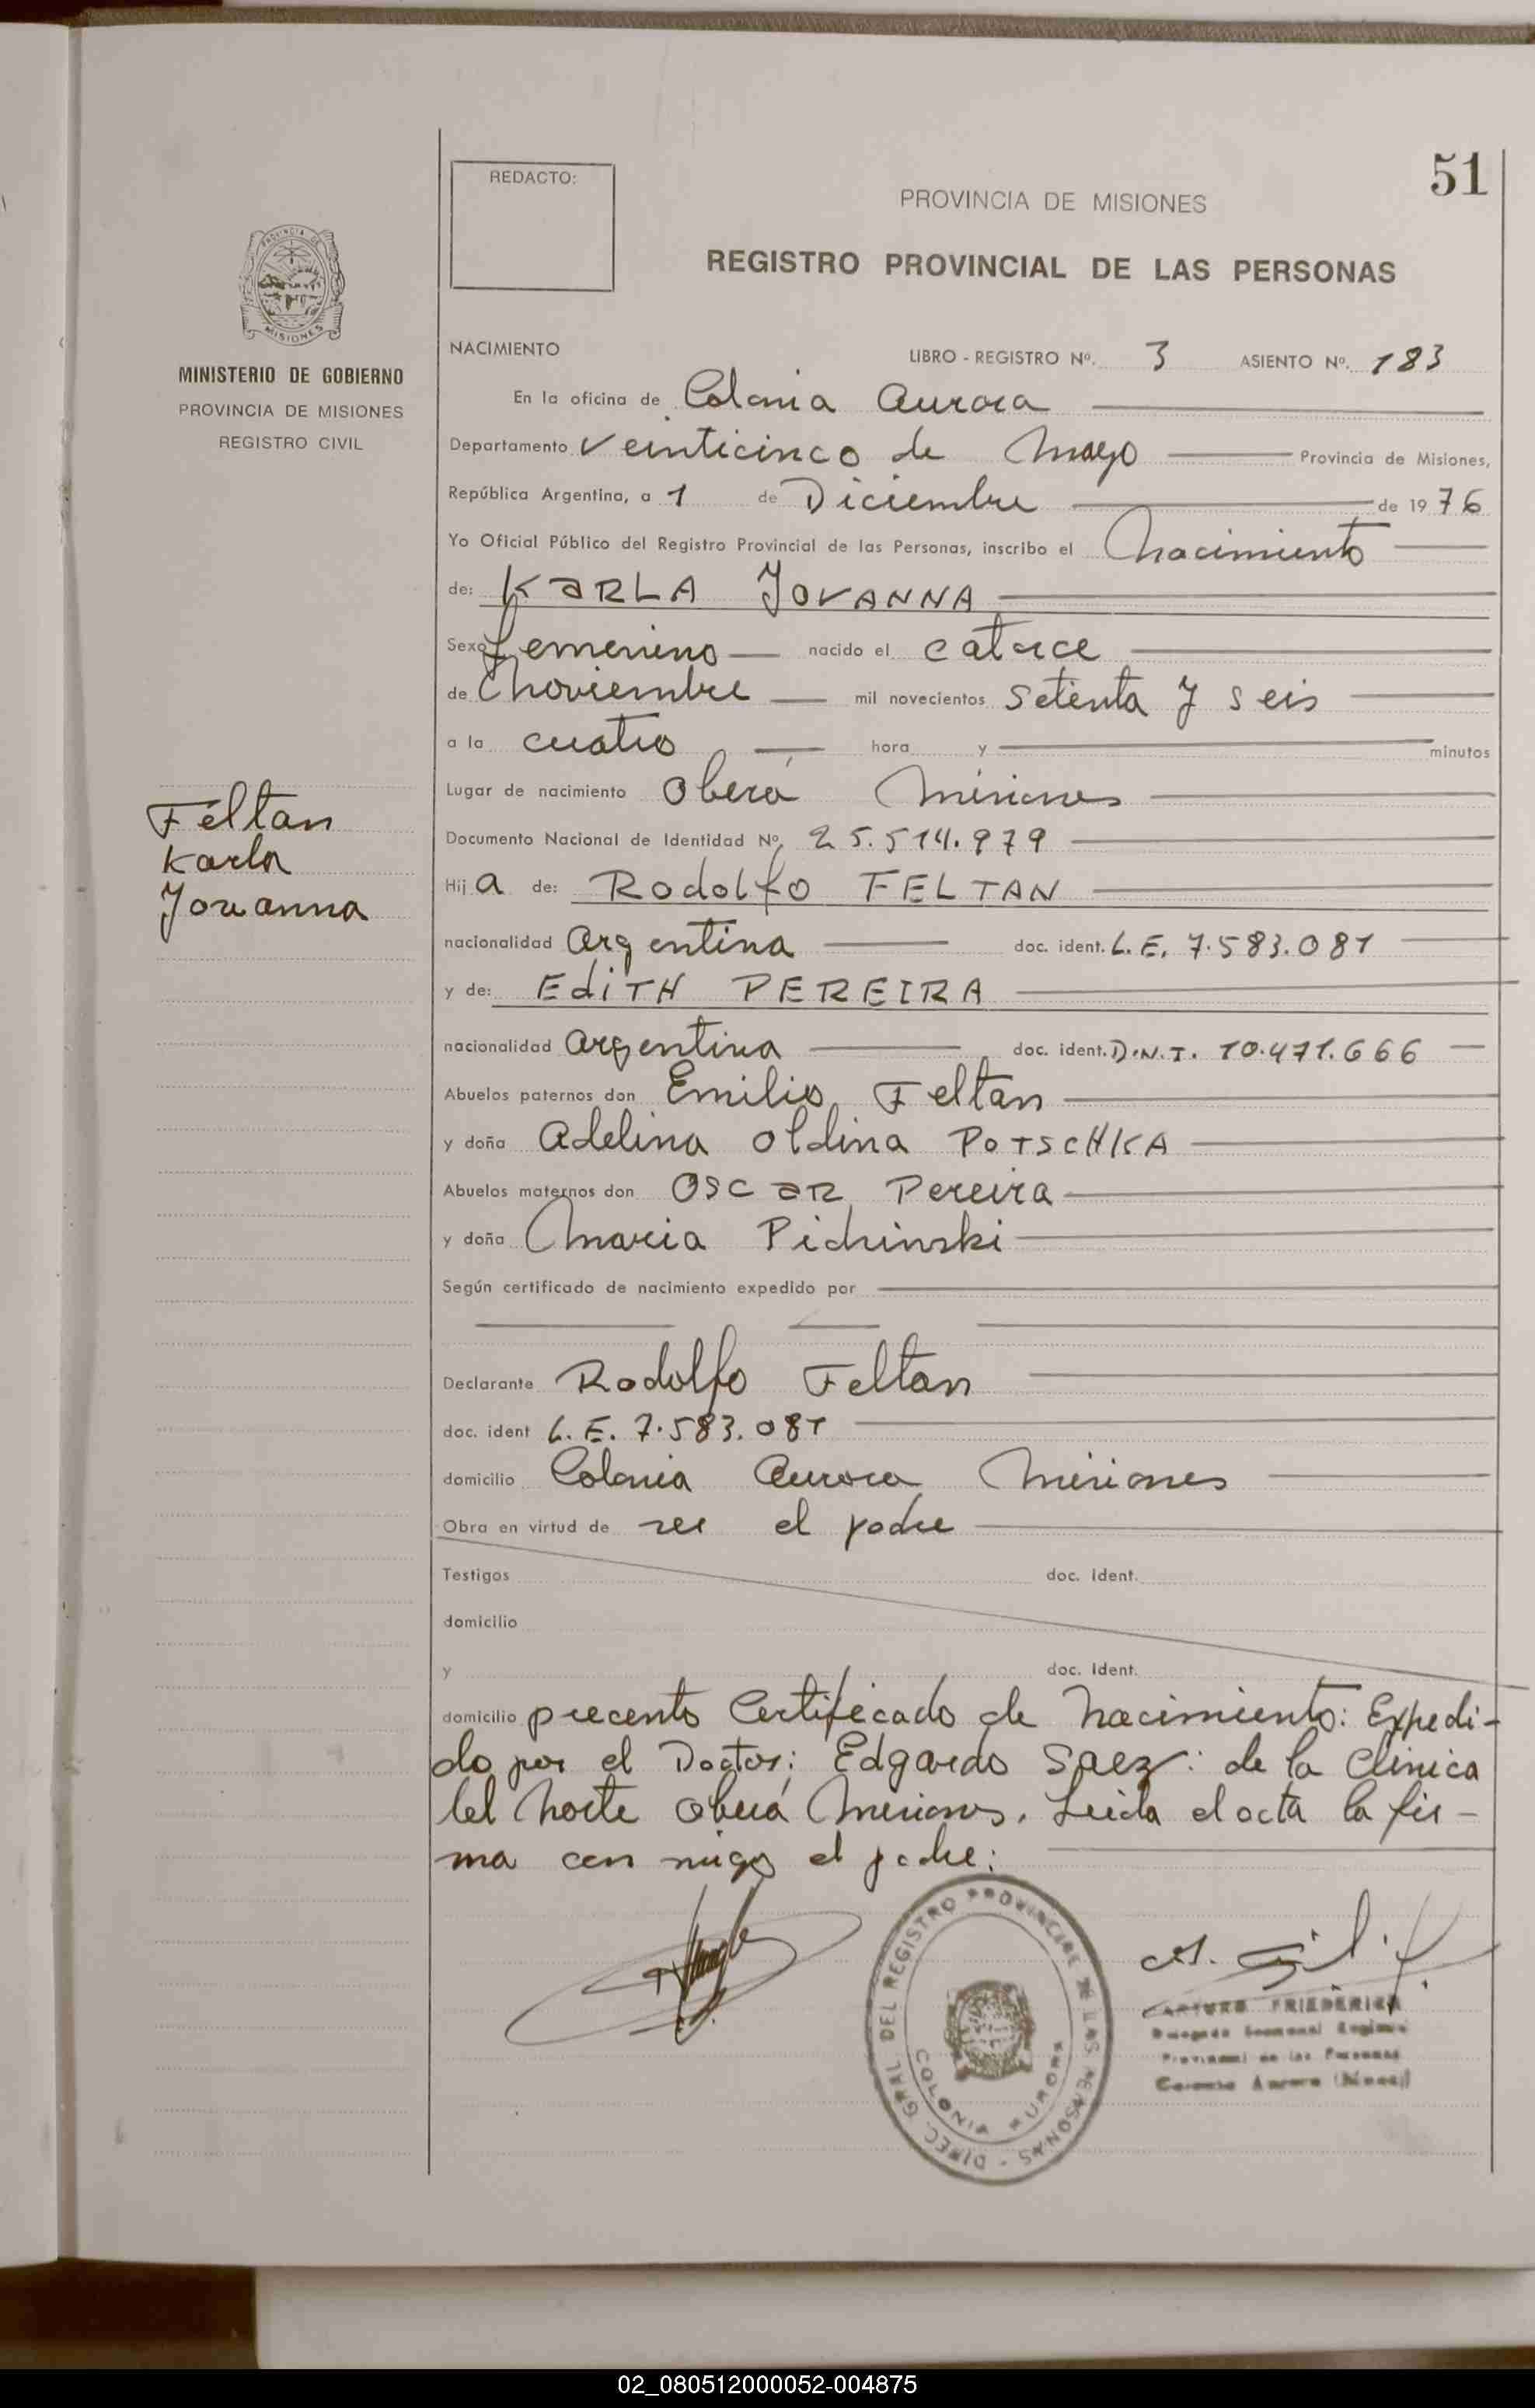 51
REDACTO:
PROVINCIA DE MISIONES
REGISTRO PROVINCIAL DE LAS PERSONAS
MISIONES
MINISTERIO DE GOBIERNO
PROVINCIA DE MISIONES
REGISTRO CIVIL
NACIMIENTO LIBRO - REGISTRO Nº. 3 ASIENTO Nº. 183
En la oficina de Colonia Aurora
Departamento Veinticinco de Mayo Provincia de Misiones,
República Argentina, a 1 de Diciembre de 1976
Yo Oficial Público del Registro Provincial de las Personas, inscribo el Nacimiento
de: KARLA JOVANNA
Sexo femenino nacido el catorce
de Noviembre mil novecientos setenta y seis
a la cuatro hora y minutos
Lugar de nacimiento Oberá Misiones
Documento Nacional de Identidad Nº, 25.514.979
Hija de: Rodolfo FELTAN
nacionalidad Argentina doc. ident. L.E. 7.583.081
y de: EdiTH PEREIRA
nacionalidad Argentina doc. ident. D.N.I. 10.471.666
Abuelos paternos don Emilio Feltan
y doña Adelina Oldina POTSCHKA
Abuelos maternos don OSCAR Pereira
y doña Maria Pichinski
Según certificado de nacimiento expedido por
Declarante Rodolfo Feltan
doc. ident L.E. 7.583.081
domicilio Colonia Aurora Misiones
Obra en virtud de ser el padre
Testigos doc. ident.
domicilio
y doc. ident.
domicilio precento Certificado de Nacimiento: Expedi-
do por el Doctor: Edgardo Saez: de la Clinica
del Norte Oberá Misiones. Leida el acta la fir-
ma con migo el padre:
Feltan
Karla
Jovanna
DIREC. GRAL. DEL REGISTRO PROVINCIAL DE LAS PERSONAS -
COLONIA AURORA
ARTURO FRIEDERICH
Provincial de las Personas
Colonia Aurora
02_080512000052-004875